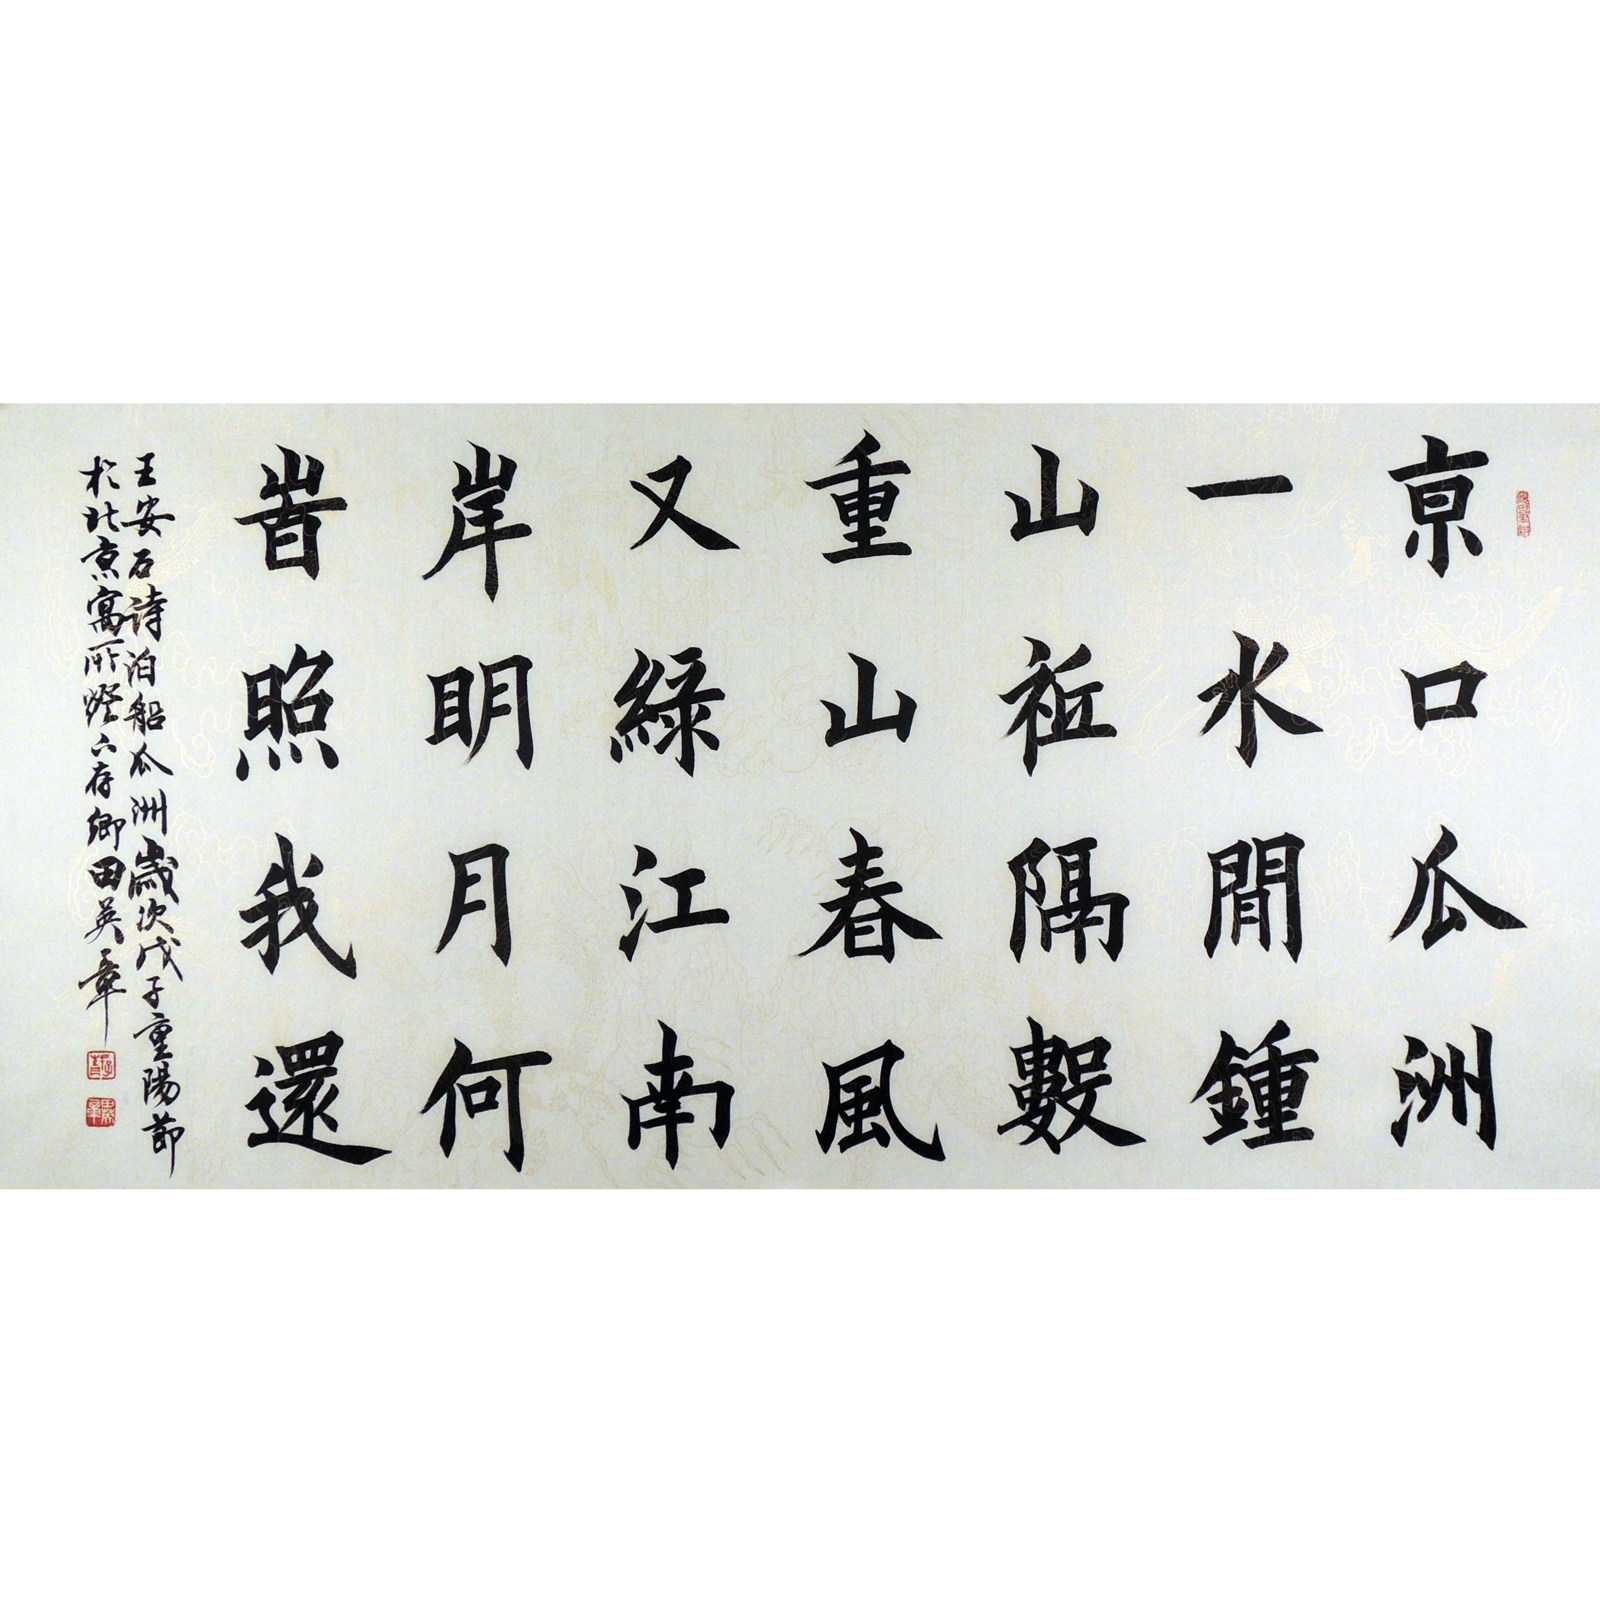 京口瓜洲
一水間鍾
山秖隔數
重山春風
又綠江南
岸明月何
旹照我還
王安石詩泊船瓜洲歲次戊子重陽節
於北京寓所燈下存卿田英章